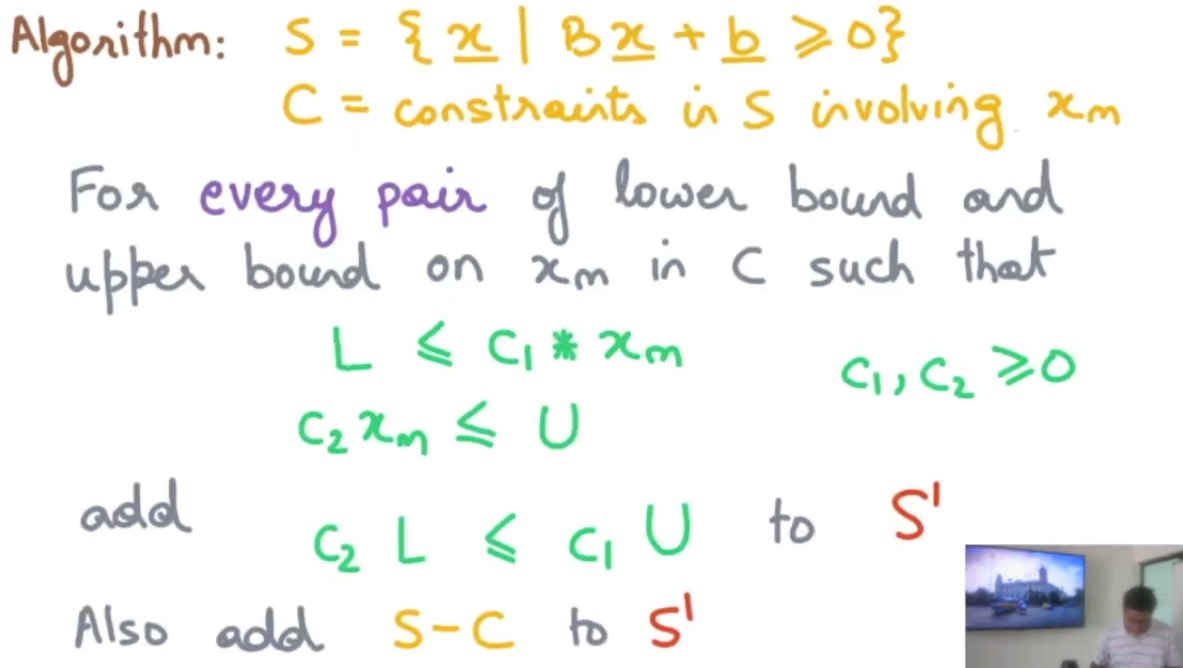 Algorithm: S = { x | Bx + b ⩾ 0}
C = constraints in S involving xm
For every pair of lower bound and
upper bound on xm in C such that
L ⩽ C₁ * xm
C₁, C₂ ⩾ 0
C₂ xm ⩽ U
add C₂ L ⩽ C₁ U to S'
Also add S - C to S'